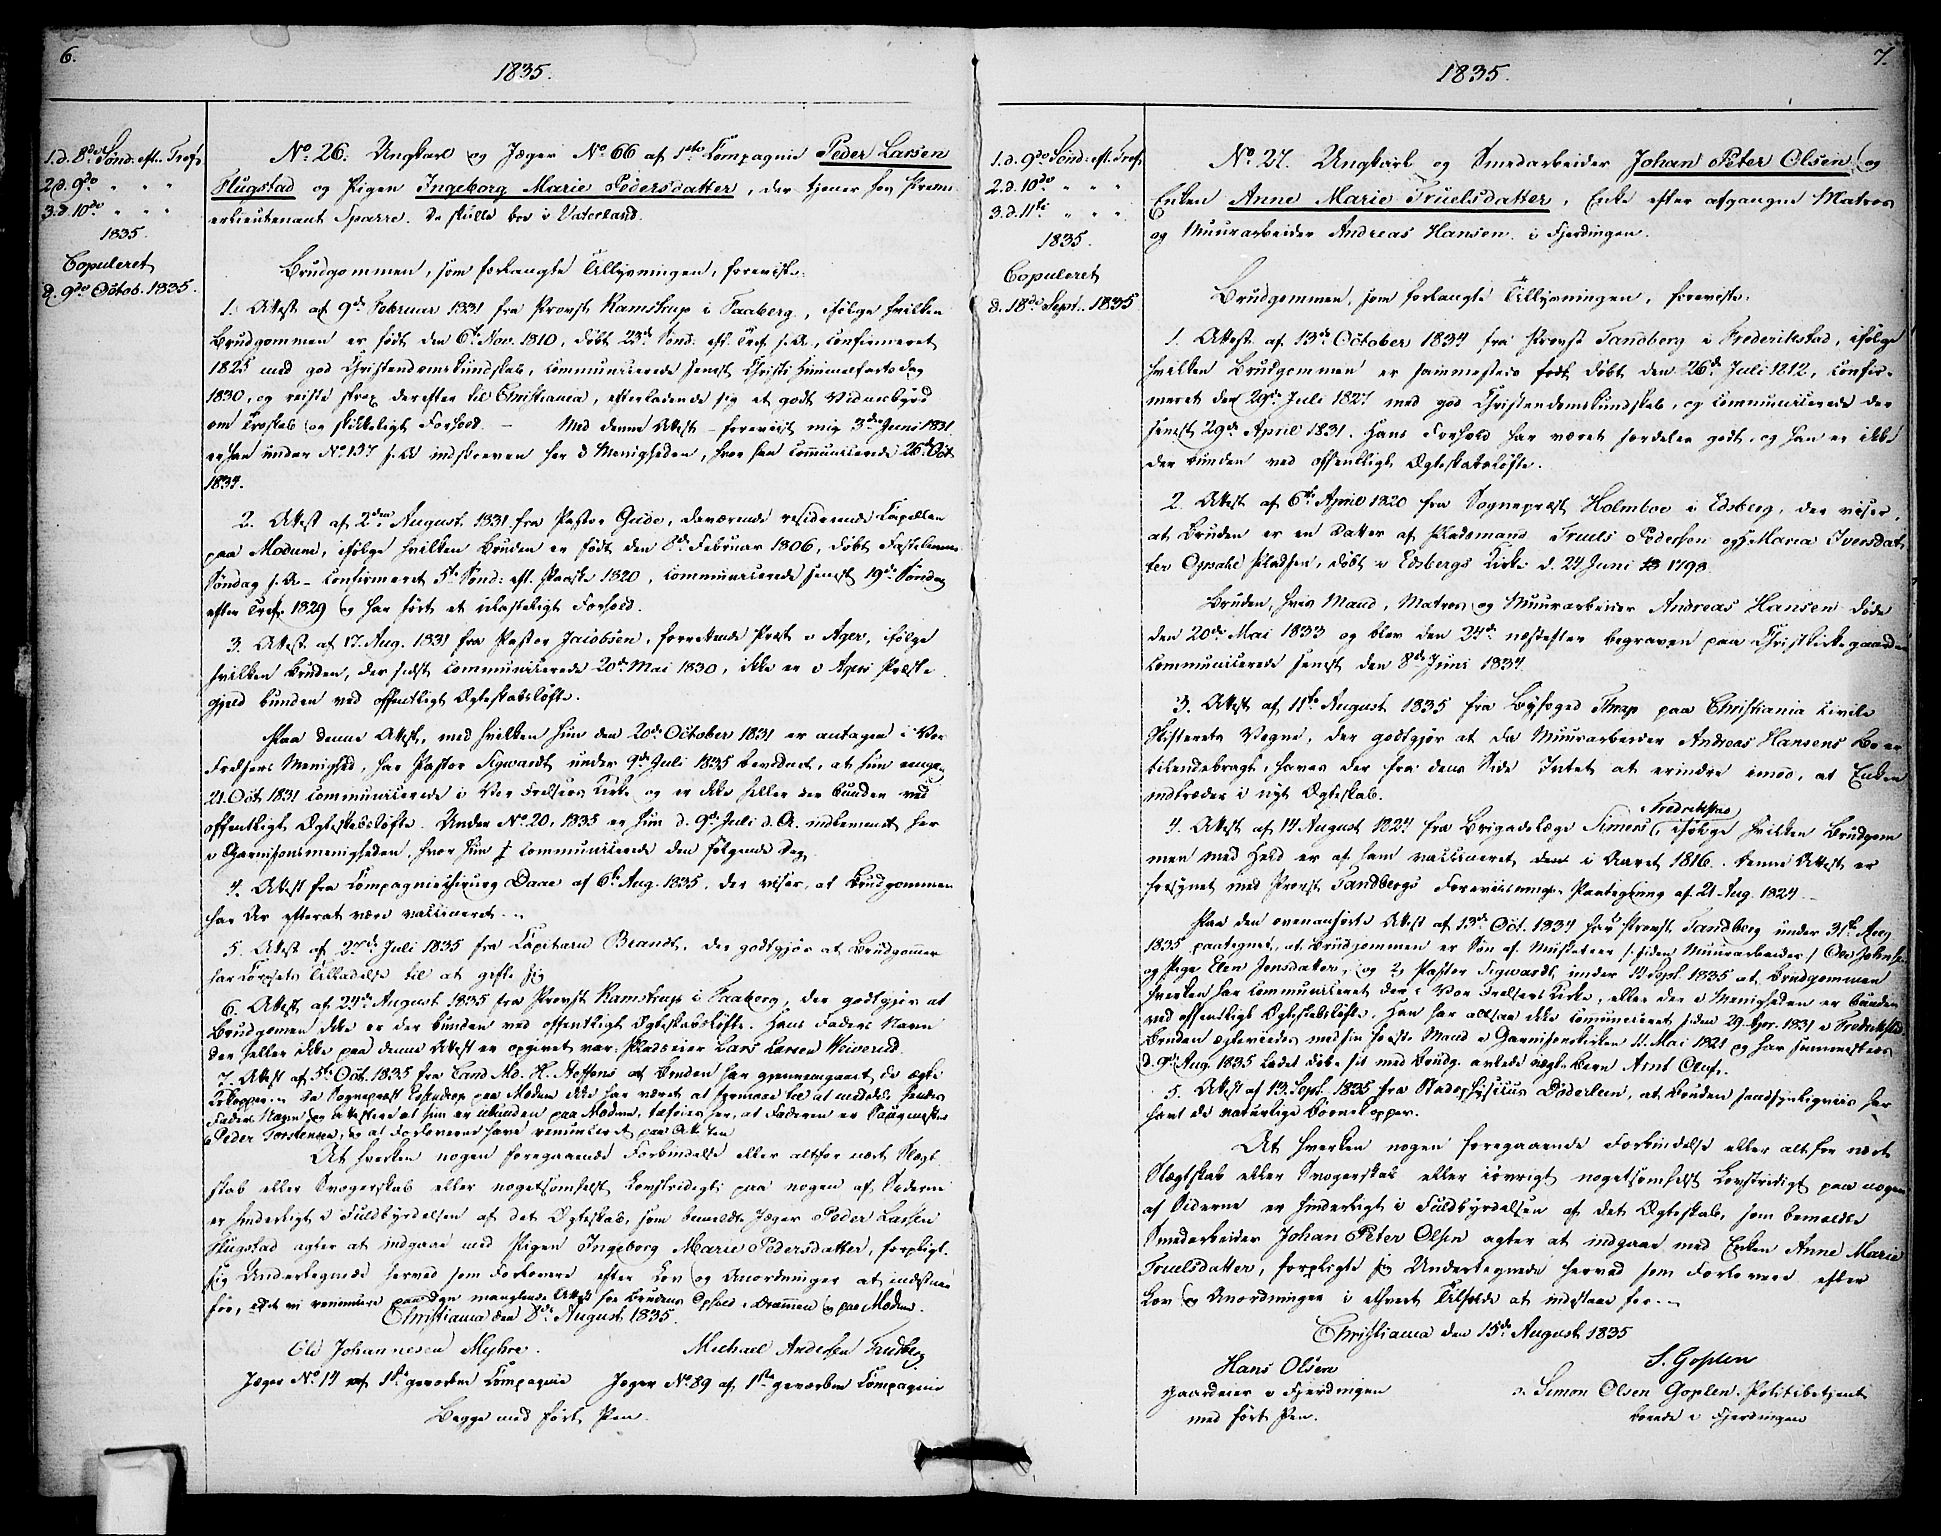 6.
1835.
1. d. 8de Sønd. eft. Tref.
2. d. 9de " " "
3. d. 10de " " "
1835.
Copuleret
d. 9de Octob. 1835.
No. 26. Ungkarl og Jæger No. 66 af 1ste Compagnie Peder Larsen
Flugstad og Pigen Ingeborg Marie Pedersdatter, der tjener hos Premi-
erlieutenant Sparre. De skulle boe i Vaterland.
Brudgommen, som forlangte Tillysningen, foreviste:
1. Attest af 9de Februar 1831 fra Provst Ramstrup i Faaberg, ifølge hvilken
Brudgommen er født den 6te Nov. 1810, døbt 23de Sønd. eft. Tref. s. A., confirmeret
1825 med god Christendomskundskab, communicerede senest Christi Himmelfartsdag
1830, og reiste strax derefter til Christiania, efterladende sig et godt Vidnesbyrd
om Troskab og skikkeligt Forhold. — Med denne Attest – foreviist mig 3de Juni 1831
er han under No. 137 s. A. indskreven her i Menigheden, hvor han communicerede 26de Oct
1834.
2. Attest af 2den August 1831 fra Pastor Gude, daværende residerende Capellan
paa Modum, ifølge hvilken Bruden er født den 8de Februar 1806, døbt Fastelavns
Søndag s. A. – confirmeret 5te Sønd. eft. Paaske 1820, communicerede senest 19de Søndag
efter Tref. 1829 og har ført et ulasteligt Forhold.
3. Attest af 17. Aug. 1831 fra Pastor Jacobsen, forrettende Præst i Ager, ifølge
hvilken Bruden, der sidst communicerede 20de Mai 1830, ikke er i Agers Præste-
gjeld bunden ved offentligt Ægteskabsløfte.
Paa denne Attest, med hvilken hun den 20de October 1831 er antagen i Vor
Frelsers Menighed, har Pastor Sigwardt under 9de Juli 1835 bevidnet, at hun
21. Oct 1831 communicerede i Vor Frelsers Kirke og er ikke heller der bunden ved
offentligt Ægteskabsløfte. Under No. 20, 1835 er hun d. 9de Juli d. A. indlemmet her
i Garnisonsmenigheden, hvor hun communicerede den følgende Dag.
4. Attest fra Compagniechirurg Daae af 6te Aug. 1835, der viser, at Brudgommen
har Ar efter at være vaccineret.
5. Attest af 27de Juli 1835 fra Capitain Brandt, der godtgjør at Brudgommen
har Corpsets Tilladelse til at gifte sig.
6. Attest af 24de August 1835 fra Provst Ramstrup i Faaberg, der godtgjør at
Brudgommen ikke er der bunden ved offentligt Ægteskabsløfte. Hans Faders Navn
der heller ikke paa denne Attest er opgivet var: Pladseier Lars Larsen
7. Attest af 5te Oct. 1835 fra Cand. Md. H. Steffens at Bruden har gjennemgaaet de ægte
Kokopper. — Da Sognepræst paa Modum ikke har været at formaae til at meddele hendes
Faders Navn og attestere at hun er ubunden paa Modum, tilføies her, at Faderen er
Peder Torstensen, og at Forloverne have renunceret paa Attesten
At hverken nogen foregaaende Forbindelse eller altfor nært Slægt-
skab eller Svogerskab eller nogetsomhelst Lovstridigt paa nogen af Siderne
er hinderligt i Fuldbyrdelsen af det Ægteskab, som bemeldte Jæger Peder Larsen
Flugstad agter at indgaae med Pigen Ingeborg Marie Pedersdatter, forpligte
sig Undertegnede herved som Forlovere efter Lov og Anordninger at indestaae
for, idet vi renuncere paa den manglende Attest for Brudens Ophold i Drammen og paa Modum.
Christiania den 8de August 1835.
Ole Johannesen Myhre. Michael Andersen
Jæger No. 14 af 1ste gevorben Compagnie Jæger No. 89 af 1ste gevorben Compagnie
Begge med ført Pen.
7.
1835.
1. d. 9de Sønd. eft. Tref.
2. d. 10de " " "
3. d. 11te " " "
1835.
Copuleret
d. 18de Sept. 1835
No. 27. Ungkarl og Smedarbeider Johan Peter Olsen og
Enken Anne Marie Truelsdatter, Enke efter afgangne Matros
og Muurarbeider Andreas Hansen i Fjerdingen.
Brudgommen, som forlangte Tillysningen, foreviste:
1. Attest af 13de October 1834 fra Provst Sandberg i Frederikstad, ifølge
hvilken Brudgommen er sammesteds født, døbt den 26de Juli 1812, confir-
meret den 29de Juli 1827 med god Christendomskundskab, og communicerede der
senest 29de April 1831. Hans Forhold har været særdeles godt, og han er ikke
der bunden ved offentligt Ægteskabsløfte.
2. Attest af 6te April 1820 fra Sognepræst Holmboe i Edsberg, der viser,
at Bruden er en Datter af Pladsmand Truels Pedersen og Maria Iversdat-
ter Opsahl Pladsen, døbt i Edsbergs Kirke d. 24 Juni 1798.
Bruden, hvis Mand, Matros og Muurarbeider Andreas Hansen døde
den 20de Mai 1833 og blev den 24de næstefter begraven paa Christkirkegaarden
communicerede senest den 8de Juni 1834.
3. Attest af 11te August 1835 fra Byfoged Thrap paa Christiania civile
Skifterets Vegne, der godtgjør at da Muurarbeider Andreas Hansens Bo er
tilendebragt, haves der fra dens Side Intet at erindre imod, at Enken
indtræder i nyt Ægteskab.
4. Attest af 14 August 1824 fra Brigadelæge Simers, Fredrikstad ifølge hvilken Brudgom-
men med Held er af ham vaccineret i Aaret 1816. Denne Attest er
forsynet med Provst Sandbergs Foreviisnings-Paategning af 21. Aug. 1824.
Paa den ovenanførte Attest af 13de Oct. 1834 har Provst Sandberg under 31te Aug.
1835 paategnet, at Brudgommen er Søn af Musketeer /: siden Muurarbeider :/ Ole Johnsen
og Pige Elen Jensdatter, og 2, Pastor Sigwardt under 12 Sept. 1835 at Brudgommen
hverken har communiceret der i Vor Frelsers Kirke, eller der i Menigheden er bunden
ved offentligt Ægteskabsløfte. Han har altsaa ikke communiceret siden 29. Apr. 1831 i Fredrikstad
Bruden ægteviedes med sin første Mand i Garnisonskirken 11. Mai 1821 og har sammesteds
d. 9de Aug. 1835 ladet døbe sit med Brudg. avlede uægte Barn Arnt Oluf.
5. Attest af 13. Sept. 1835 fra Stadsphysicus Döderlein, at Bruden sandsynligviis har
havt de naturlige Børnekopper.
At hverken nogen foregaaende Forbindelse eller alt for nært
Slægtskab eller Svogerskab eller iøvrigt nogetsomhelst Lovstridigt paa nogen
af Siderne er hinderligt i Fuldbyrdelsen af det Ægteskab, som bemeldte
Smedarbeider Johan Peter Olsen agter at indgaae med Enken Anne Marie
Truelsdatter, forpligte sig Undertegnede herved som Forlovere efter
Lov og Anordninger i ethvert Tilfælde at indestaae for.
Christiania den 15de August 1835
Hans Olsen S. Goplen
Gaardeier i Fjerdingen Simon Olsen Goplen. Politibetjent
med ført Pen. boende i Fjerdingen